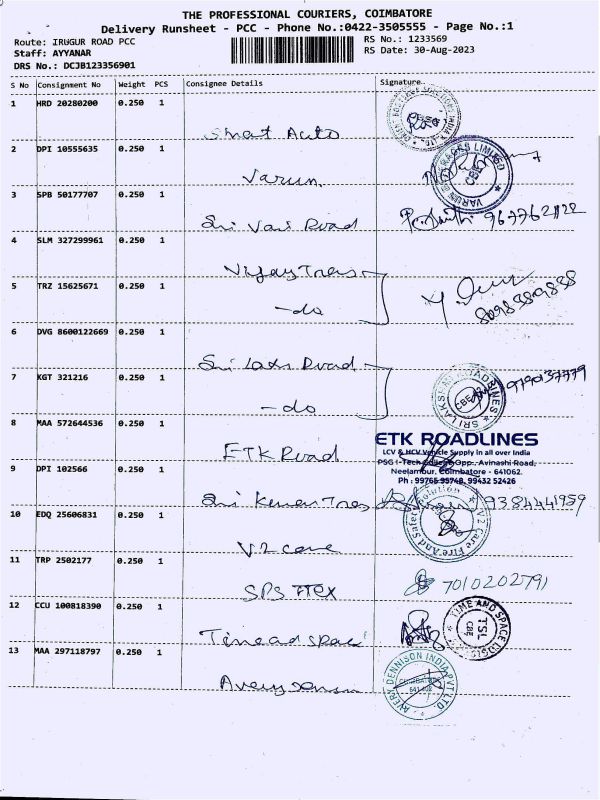 THE PROFESSIONAL COURIERS, COIMBATORE
Delivery Runsheet - PCC - Phone No.:0422-3505555 - Page No.:1
Route: IRUGUR ROAD PCC RS No.: 1233569
Staff: AYYANAR RS Date: 30-Aug-2023
DRS No.: DCJB123356901
S No Consignment No Weight PCS Consignee Details Signature
1 HRD 20280200 0.250 1
Smart Auto
2 DPI 10555635 0.250 1
Varun
VARUN BEVERAGES LIMITED
CBE
3 SPB 50177707 0.250 1
Sri Vari Road
4 SLM 327299961 0.250 1
Vijay Trans
5 TRZ 15625671 0.250 1
-do
6 DVG 8600122669 0.250 1
Sri Laks Road
7 KGT 321216 0.250 1
-do
SRI LAKSHMI ROADLINES
CBE
8 MAA 572644536 0.250 1
ETK Road
ETK ROADLINES
LCV & HCV Vehicle Supply in all over India
PSG I-Tech College Opp., Avinashi Road,
Neelambur, Coimbatore - 641062.
Ph : 99765 95748, 99432 52426
9 DPI 102566 0.250 1
Sri Kumaran Trans 9384441959
10 EDQ 25606831 0.250 1
V2 care
V2 Care Fire And Safety Solution
11 TRP 2502177 0.250 1
SPS Flex 7010202791
12 CCU 100818390 0.250 1
Time and space
TIME AND SPACE
TSL
CBE
13 MAA 297118797 0.250 1
Avery
AVERY DENNISON INDIA PVT LTD.